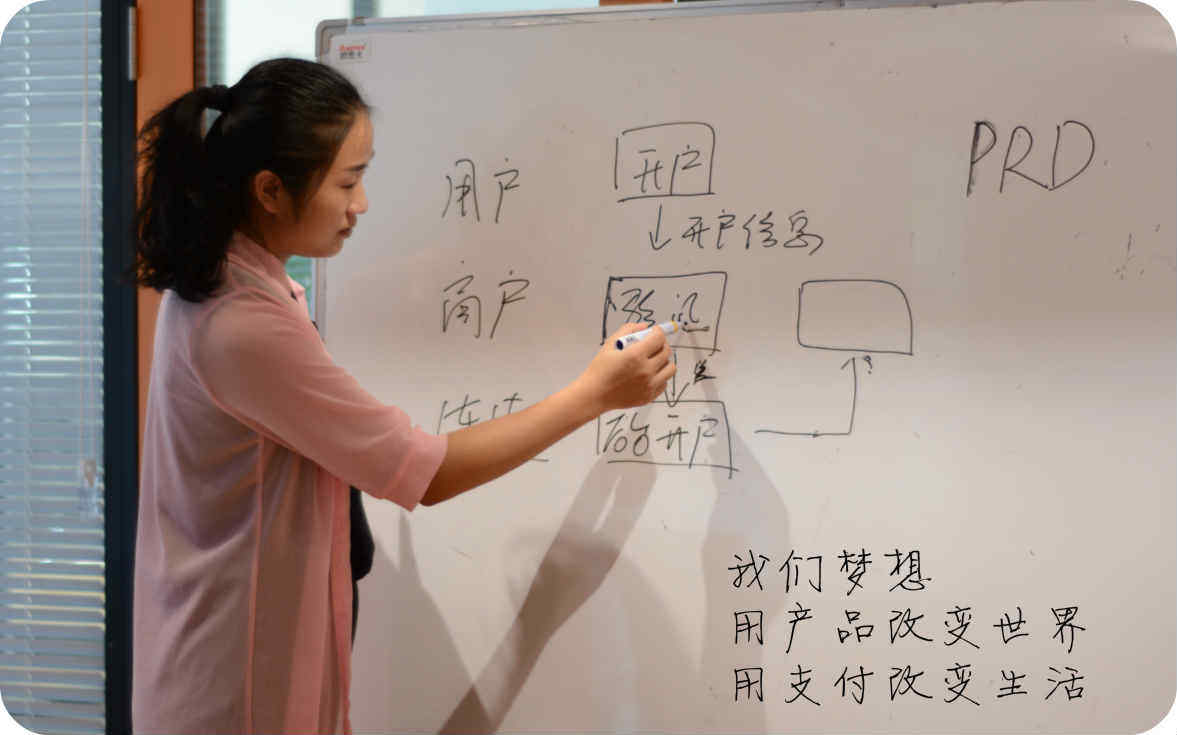 PRD
用户 开户
开户信息
商户 验证
开户
我们梦想
用产品改变世界
用支付改变生活